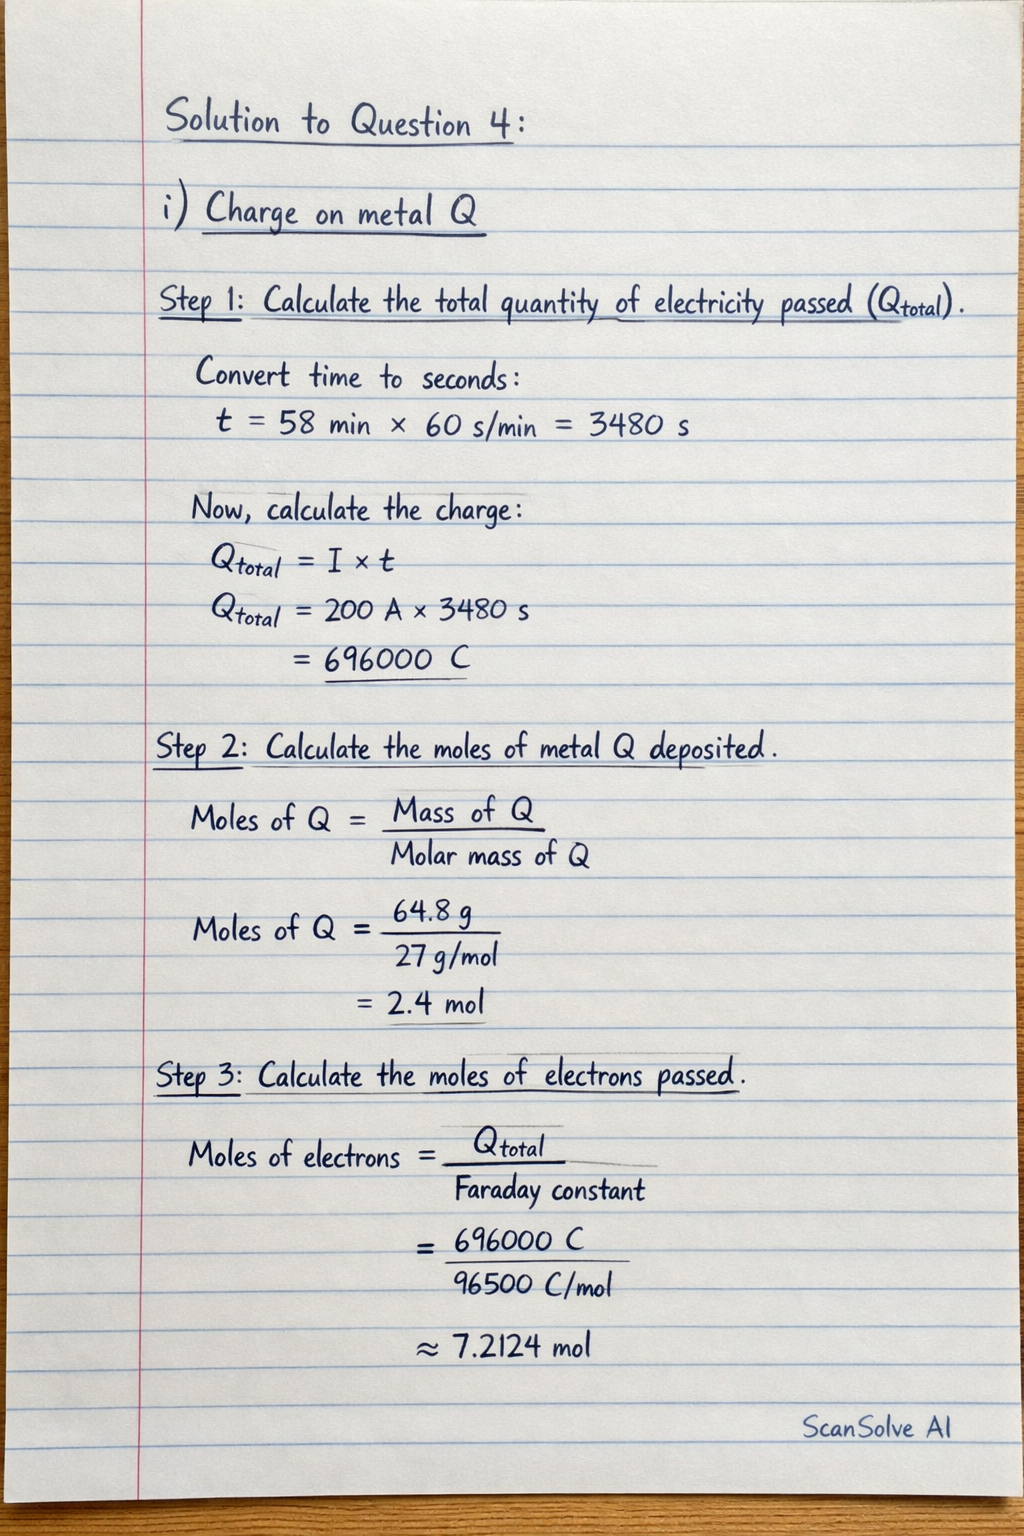 Solution to Question 4:
i) Charge on metal Q
Step 1: Calculate the total quantity of electricity passed (Qtotal).
Convert time to seconds:
t = 58 min × 60 s/min = 3480 s
Now, calculate the charge:
Qtotal = I × t
Qtotal = 200 A × 3480 s
= 696000 C
Step 2: Calculate the moles of metal Q deposited.
Moles of Q = Mass of Q
Molar mass of Q
Moles of Q = 64.8 g
27 g/mol
= 2.4 mol
Step 3: Calculate the moles of electrons passed.
Moles of electrons = Qtotal
Faraday constant
= 696000 C
96500 C/mol
≈ 7.2124 mol
ScanSolve AI